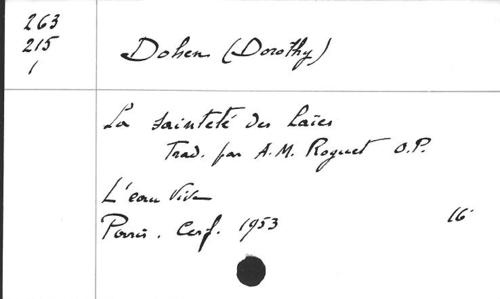 263
215
1
Dohen (Dorothy)
La sainteté des laïcs
Trad. par A.M. Roguet O.P.
L'eau vive
Paris. Cerf. 1953 16°